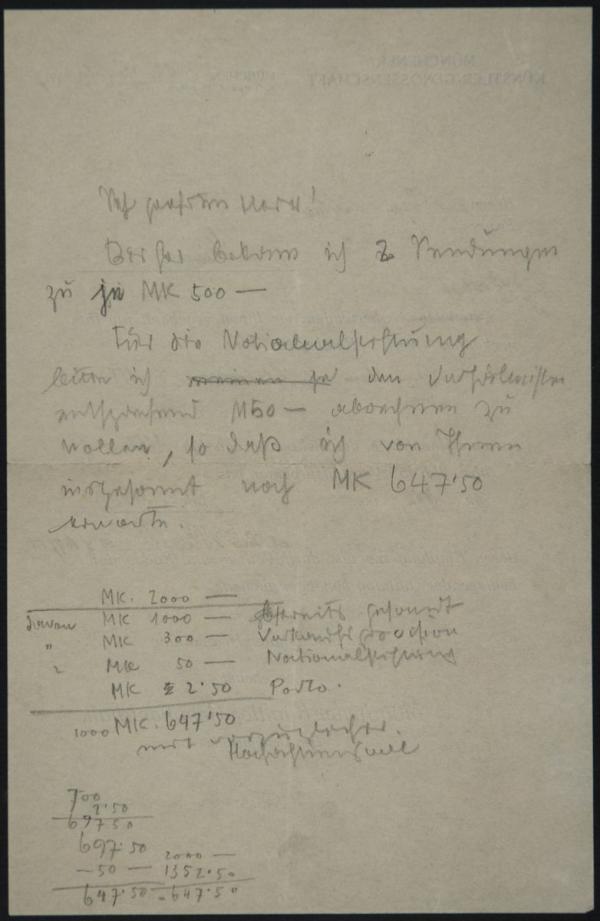 MÜNCHENER
KÜNSTLERGENOSSENSCHAFT
Sehr geehrter Herr!
Bisher bekam ich 2 Sendungen
zu je MK 500 —
Für die Nationalstiftung
bitte ich den Verhältnissen
entsprechend M50 — abrechnen zu
wollen, so daß ich von Ihnen
insgesamt noch MK 647'50
erwarte.
MK. 2000 —
davon MK 1000 — bereits gesandt
" MK 300 — Verkaufsprovision
" MK 50 — Nationalstiftung
MK 2'50 Porto.
1000 MK. 647'50
mit vorzüglicher
Hochachtungsvoll
700
2'50
697 50
697.50 2000 —
— 50 — 1352.50
647.50 647.50